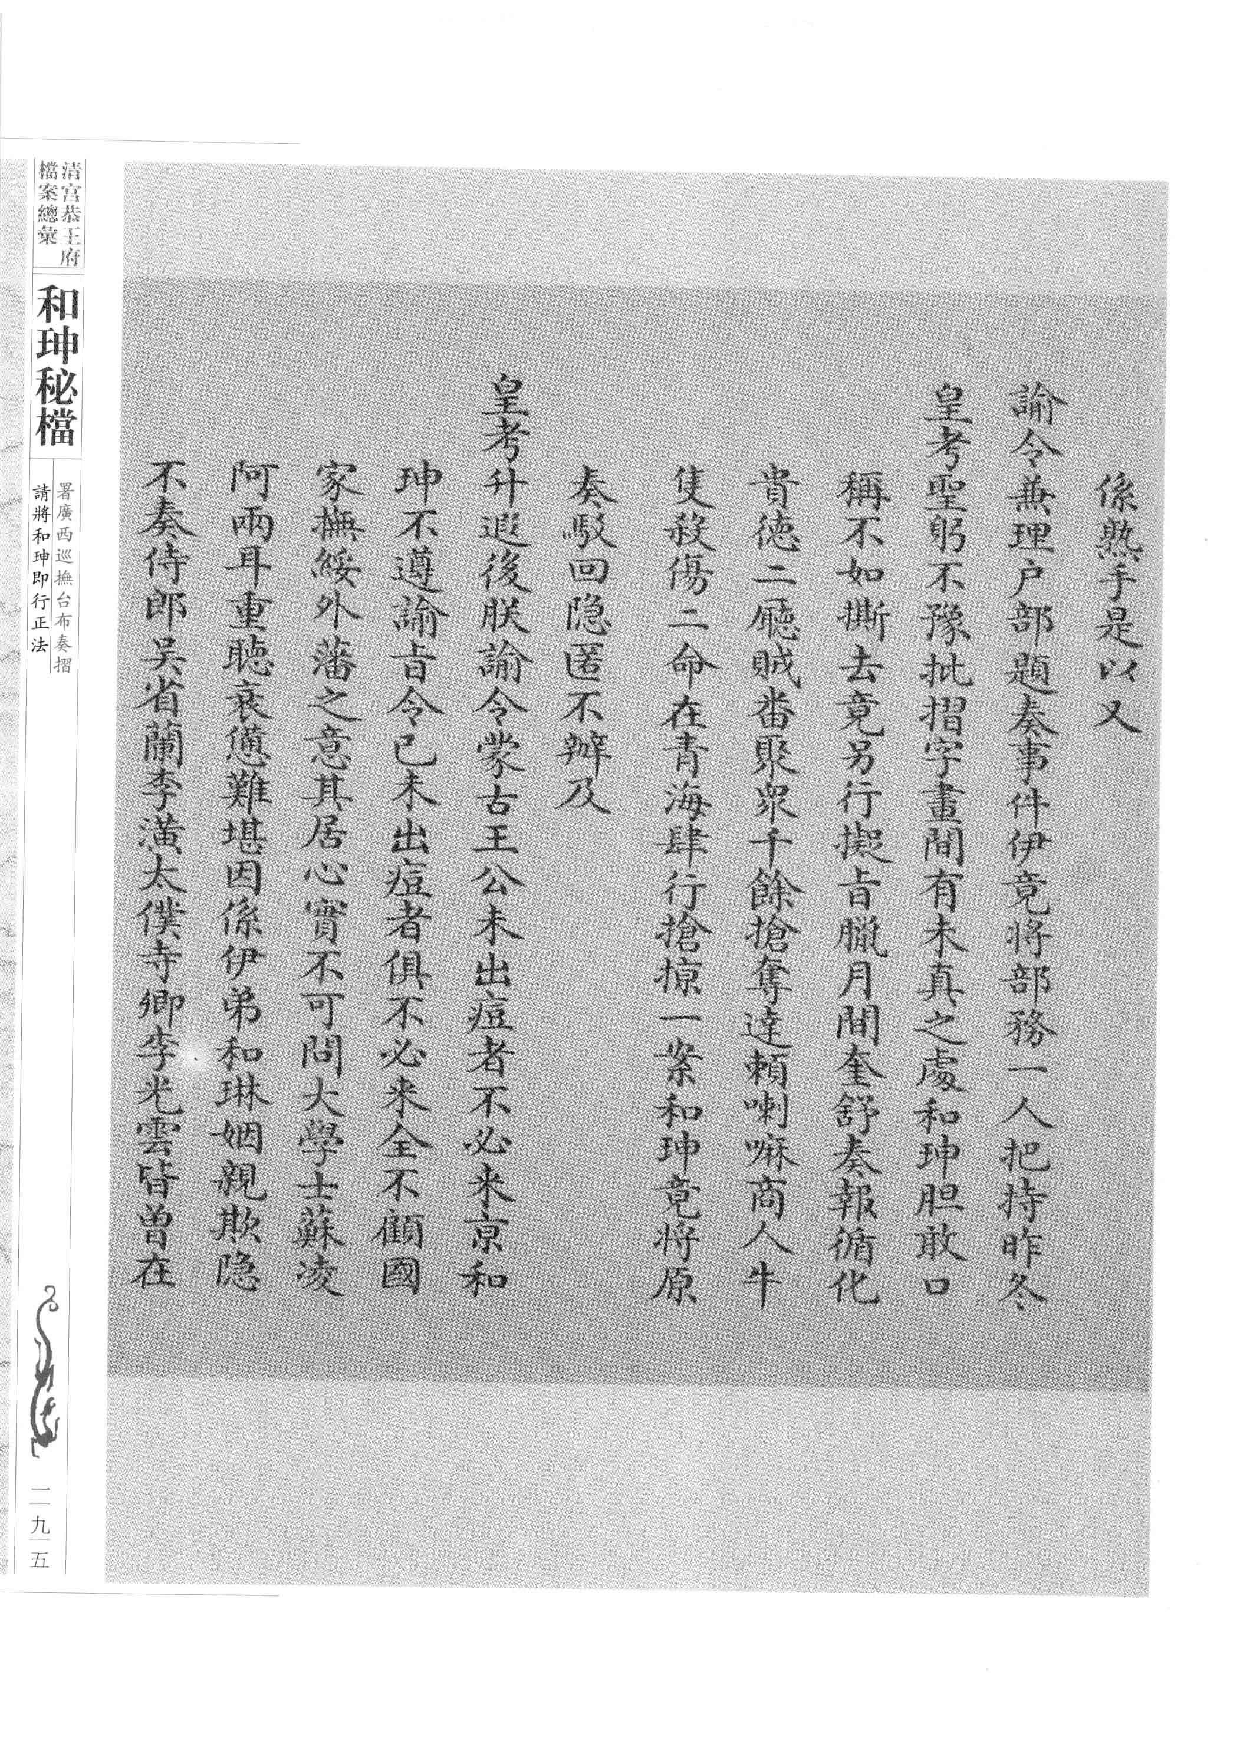 係熟手是以又
諭令兼理户部題奏事件伊竟將部務一人把持昨冬
皇考聖躬不豫批摺字畫間有未真之處和珅胆敢口
稱不如撕去竟另行擬旨臘月間奎舒奏報循化
貴德二廳賊番聚衆千餘搶奪達賴喇嘛商人牛
隻殺傷二命在青海肆行搶掠一案和珅竟將原
奏駁回隐匿不辦及
皇考升遐後朕諭令蒙古王公未出痘者不必来京和
珅不遵諭旨令已未出痘者俱不必来全不顧國
家撫綏外藩之意其居心實不可問大學士蘇凌
阿兩耳重聽衰憊難堪因係伊弟和琳姻親欺隐
不奏侍郎吴省蘭李潢太僕寺卿李光雲皆曾在
清宫恭王府
檔案總彙
和珅秘檔
署廣西巡撫台布奏摺
請將和珅即行正法
二九五